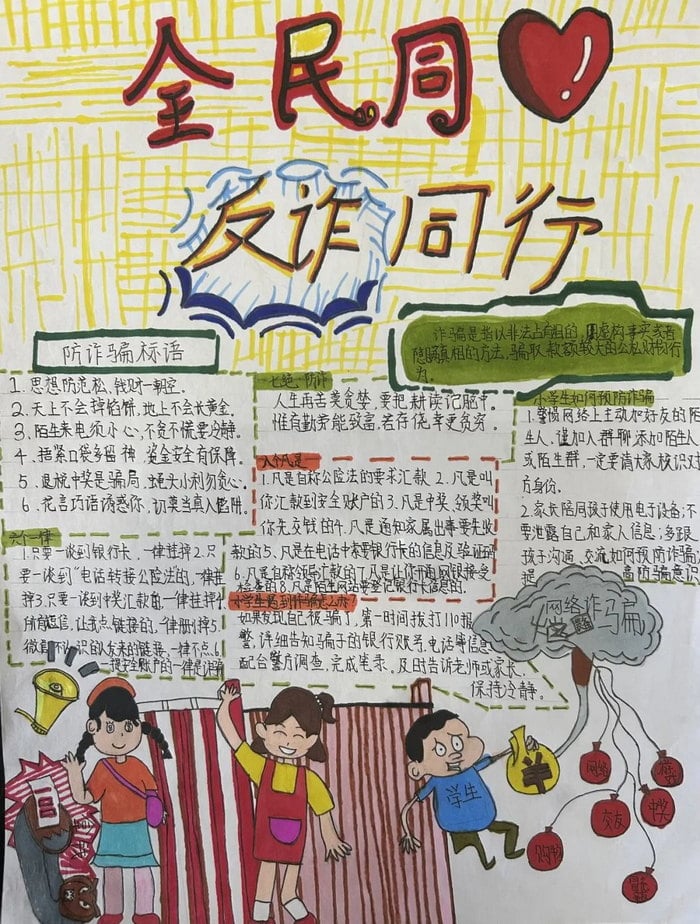 全民同
反诈同行
防诈骗标语
1、思想防范松,钱财一朝空。
2、天上不会掉馅饼,地上不会长黄金。
3、陌生来电须小心,不贪不慌要冷静。
4、捂紧口袋多留神,资金安全有保障。
5、退税中奖是骗局,蝇头小利勿贪心。
6、花言巧语诱惑你,切莫当真入陷阱。
诈骗是指以非法占有目的,用虚构事实或者
隐瞒真相的方法,骗取款额较大的公私财物行
为
七绝、防诈
人生再苦莫贪婪,要把耕读记胸中。
惟有勤劳能致富,若存侥幸更贫穷。
八个凡是
1.凡是自称公检法的要求汇款 2.凡是叫
你汇款到安全账户的 3.凡是中奖、领奖叫
你先交钱的 4.凡是通知家属出事要先汇
款的 5.凡是在电话中索要银行卡的信息及验证码
6.凡是自称领导汇款的 7.凡是让你开通网银接受
小学生如何预防诈骗
1.警惕网络上主动和好友的陌
生人,谨加入群聊,添加陌生人
或陌生群,一定要请大家核识对
方身份。
2.家长陪同孩子使用电子设备;不
要泄露自己和家人信息;多跟
孩子沟通,交流如何预防诈骗;
提高防骗意识
六个一律
1.只要一谈到银行卡,一律挂掉 2.只
要一谈到"电话转接公检法的,一律挂
掉 3.只要一谈到中奖汇款前,一律挂掉
所有短信,让我点链接的,一律删掉 5
微信不认识的人发来的链接,一律不点 6
一提安全账户的一律是诈骗
小学生遇到诈骗怎么办?
如果发现自己被骗了,第一时间拨打110报
警,详细告知骗子的银行账号,电话等信息
配合警方调查,完成笔录,及时告诉老师或家长,
保持冷静。
网络诈骗
学生
网络
交友
中奖
购物